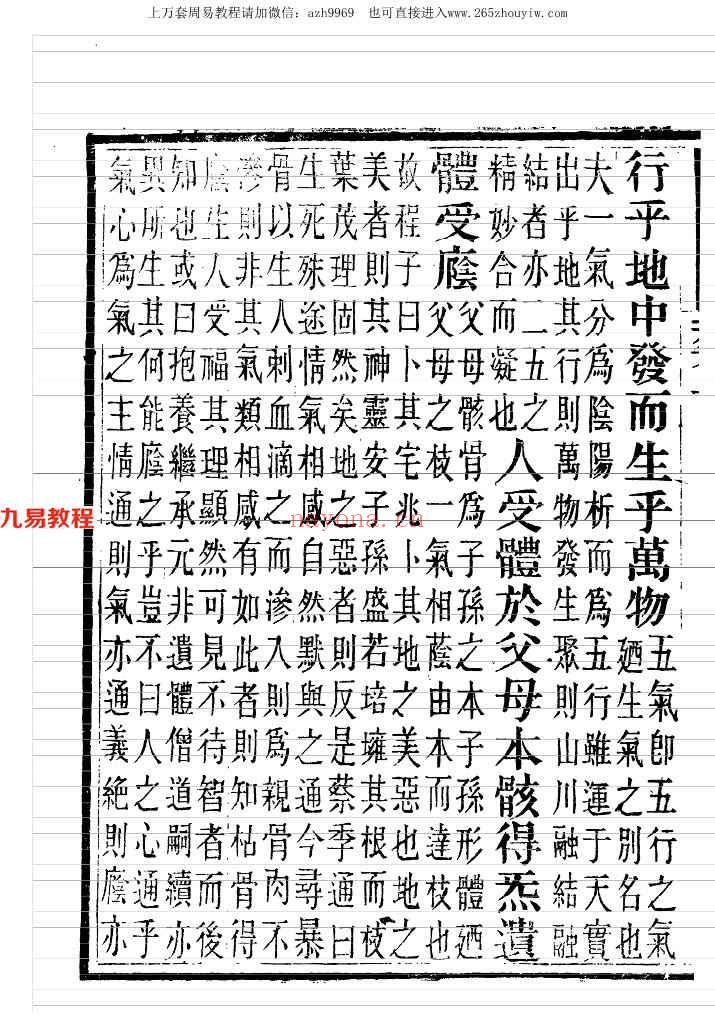 上万套周易教程请加微信：azh9969 也可直接进入www.265zhouyiw.com
行乎地中發而生乎萬物
五氣即五行之氣
廼生氣之別名也
大一氣分為陰陽析而為五行雖運于天實
出乎地其行則萬物發生聚則山川融結融
結者亦二五之
精妙合而凝也
人受體於父母本骸得炁遺
體受廕
父母骸骨為子孫之本子孫形體廼
父母之枝一氣相蔭由本而達枝也
故程子曰卜其宅兆卜其地之美惡也地之
美者則其神靈安子孫盛若培擁其根而枝
葉茂理固然矣地之惡者則反是蔡季通曰
生死殊途情氣相感自然默與之通今尋暴
骨以生人刺血滴之而滲入則為親骨肉不
滲則非其氣類相感有如此者則知枯骨得
廕生人受福其理顯然可見不待智者而後
知也或曰抱養繼承元非遺體僧道嗣續亦
異所生其何能廕之乎豈不曰人之心通乎
氣心為氣之主情通則氣亦通義絕則廕亦
九易教程
nayona.cn